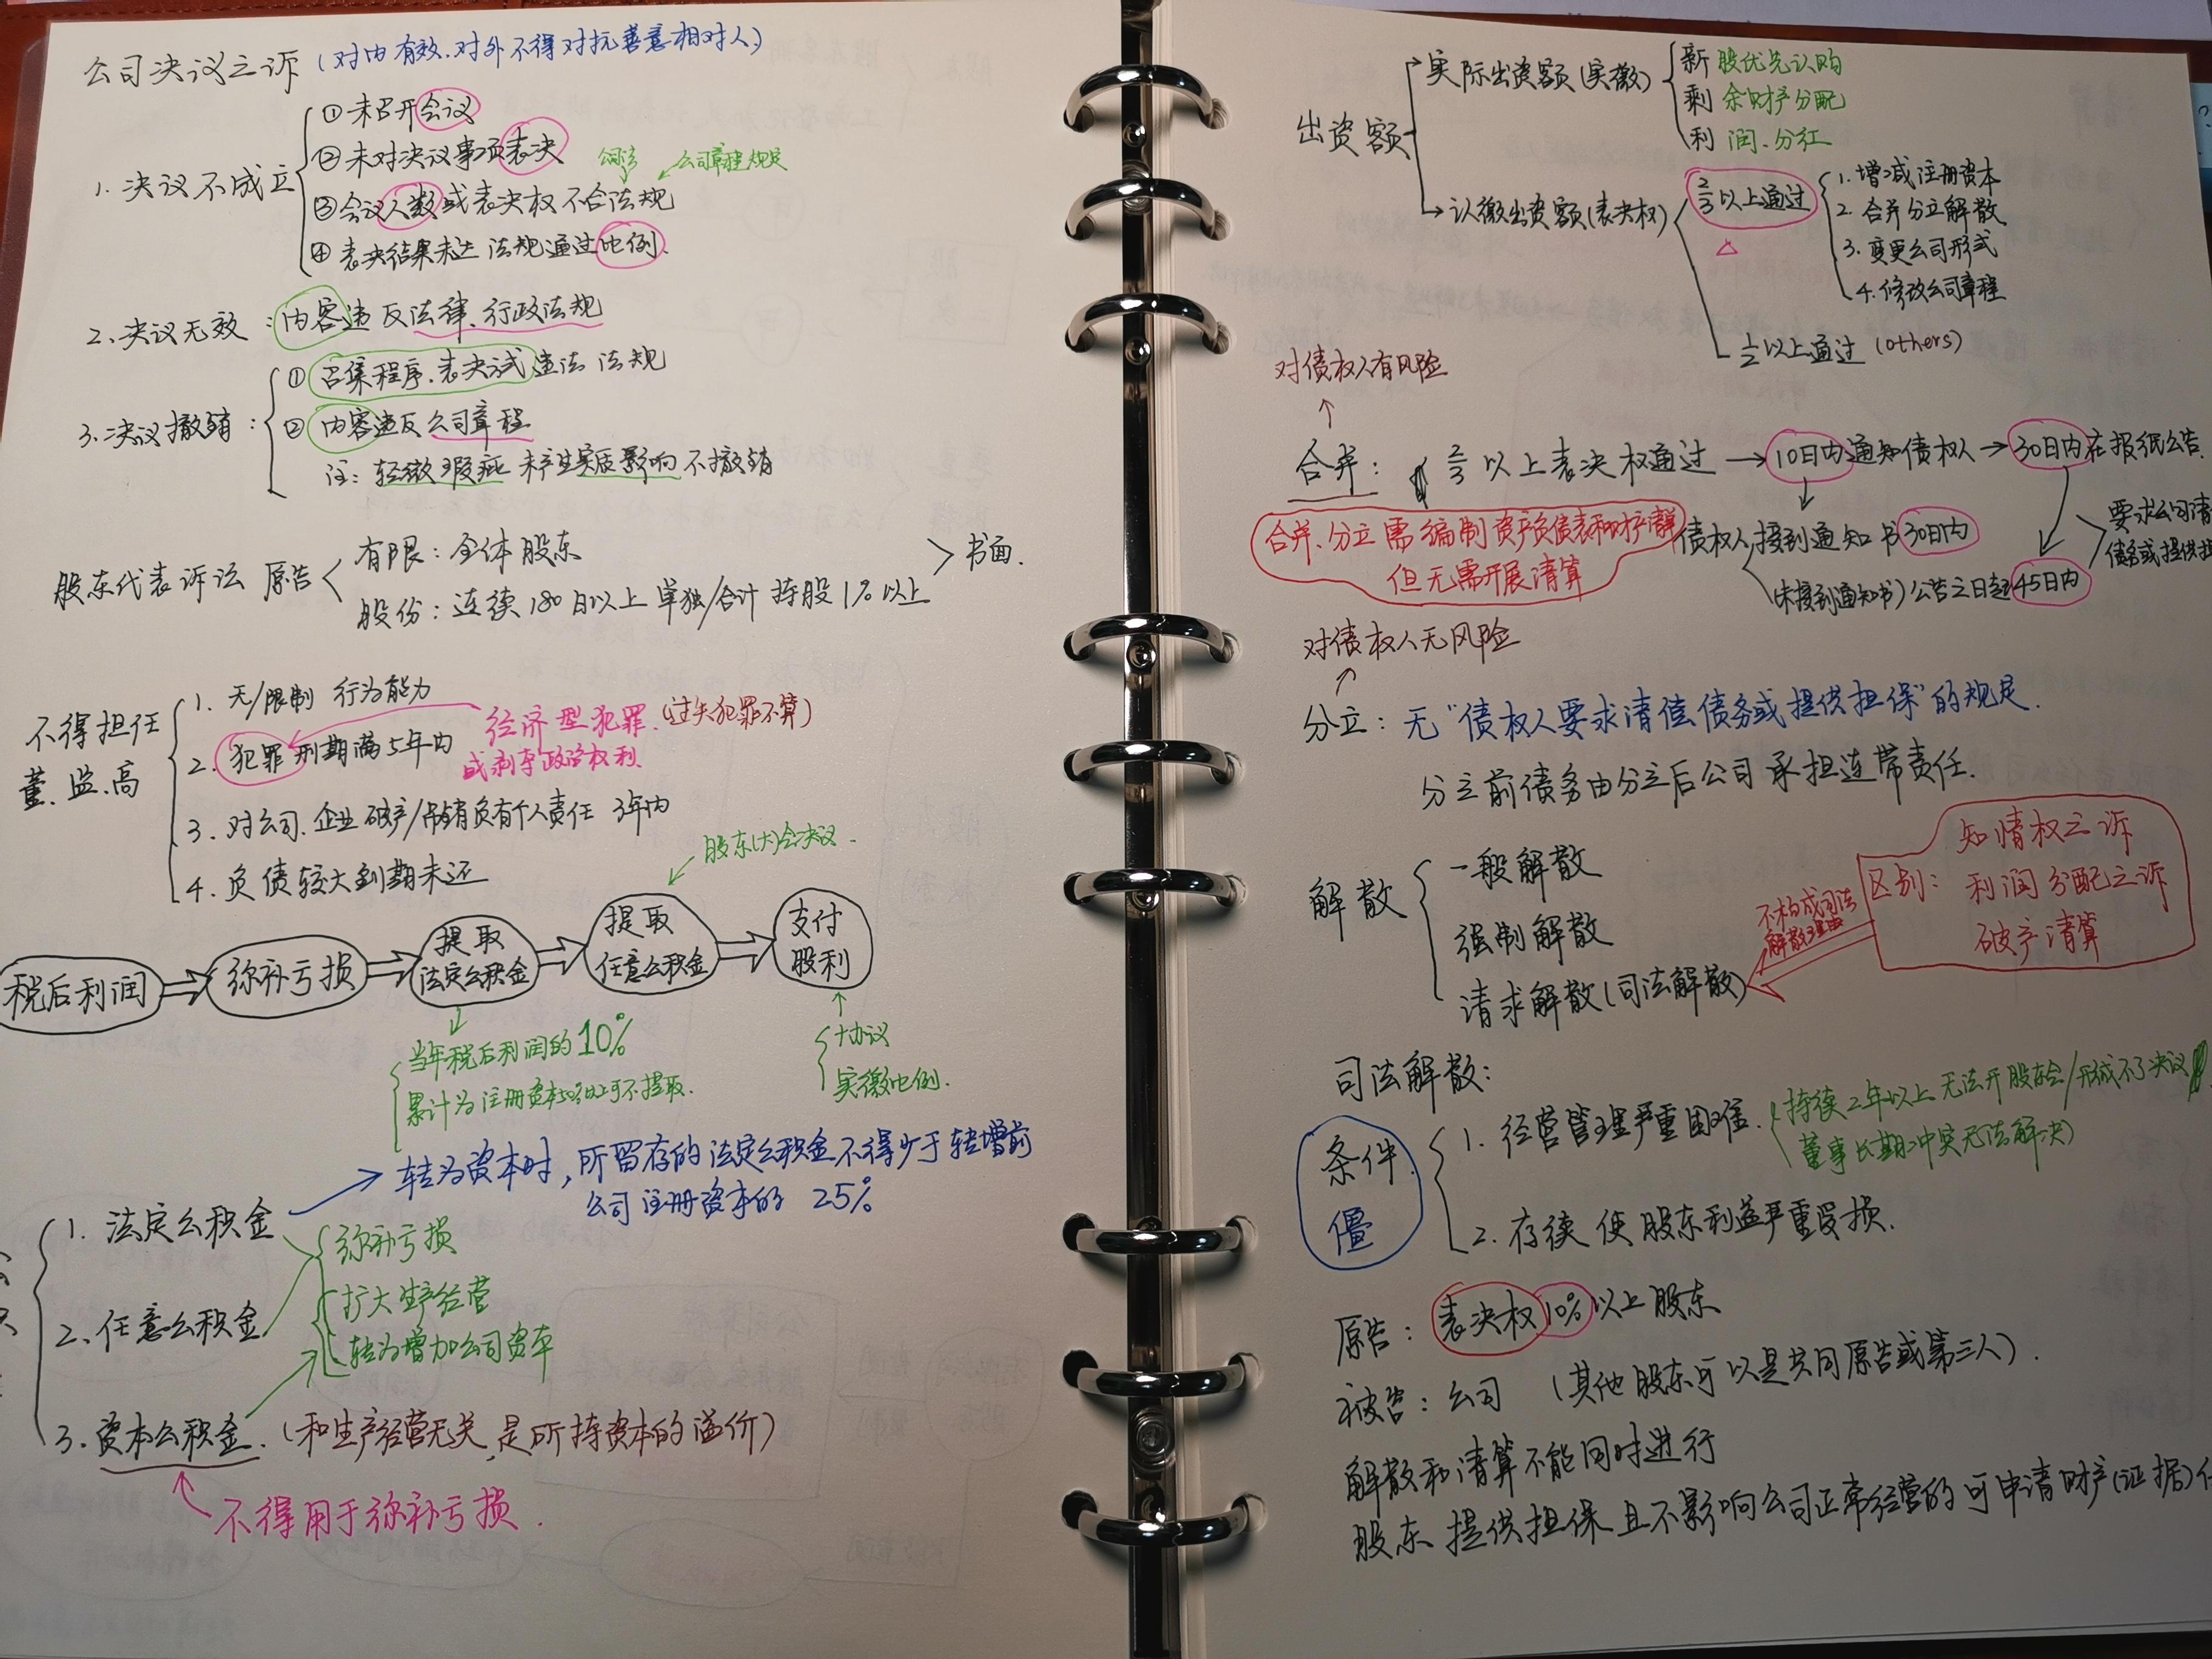 公司决议之诉(对内有效.对外不得对抗善意相对人)
1. 决议不成立
①未召开会议
②未对决议事项表决
公司法
公司章程规定
③会议人数或表决权不合法规
④表决结果未达 法规通过比例.
2.决议无效:内容违反法律、行政法规
3.决议撤销:
①召集程序.表决方式违法 法规
②内容违反公司章程
注:轻微瑕疵 未产生实质影响不撤销
股东代表诉讼 原告
有限:全体股东
股份:连续180日以上单独/合计持股1%以上
书面.
不得担任
董.监.高
1. 无/限制 行为能力
2. 犯罪刑期满5年内
经济型犯罪.(过失犯罪不算)
或剥夺政治权利.
3. 对公司.企业破产/吊销负有个人责任 3年内
4. 负债较大到期未还
股东(大)会决议.
税后利润
弥补亏损
提取
法定公积金
提取
任意公积金
支付
股利
当年税后利润的10%
累计为注册资本50%以上可不提取.
协议
实缴比例.
转为资本时,所留存的法定公积金不得少于转增前
公司注册资本的 25%
1. 法定公积金
2. 任意公积金
3. 资本公积金.(和生产经营无关,是所持资本的溢价)
弥补亏损
扩大生产经营
转为增加公司资本
不得用于弥补亏损.
出资额
实际出资额(实缴)
新 股优先认购
剩 余财产分配
利 润.分红
认缴出资额(表决权)
2/3以上通过
1.增减注册资本
2. 合并分立解散
3. 变更公司形式
4. 修改公司章程
1/2以上通过(others)
对债权人有风险
合并: 2/3以上表决权通过→10日内通知债权人→30日内在报纸公告.
合并、分立需编制资产负债表和财产清单
但无需开展清算
债权人接到通知书30日内
(未接到通知书)公告之日起45日内
要求公司清
债务或提供担
对债权人无风险
分立:无"债权人要求清偿债务或提供担保"的规定.
分立前债务由分立后公司承担连带责任.
解散
一般解散
强制解散
请求解散(司法解散)
不构成司法
解散理由
区别:
知情权之诉
利润分配之诉
破产清算
司法解散:
条件
僵
1. 经营管理严重困难.
持续2年以上无法开股东会/形成不了决议
董事长期冲突无法解决)
2. 存续使股东利益严重受损.
原告:表决权10%以上股东
被告:公司 (其他股东可以是共同原告或第三人).
解散和清算不能同时进行
股东提供担保且不影响公司正常经营的可申请财产(证据)